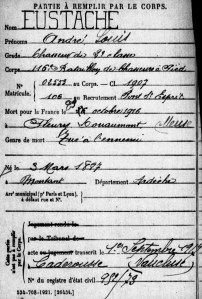 PARTIE À REMPLIR PAR LE CORPS.
Nom EUSTACHE
Prénoms André Louis
Grade Chasseur de 2e classe
Corps 116e Bataillon de Chasseurs à Pied
N° Matricule. au Corps. — Cl. 1907
au Recrutement Pont St Esprit
Mort pour la France le octobre 1916
à Fleury Douaumont Meuse
Genre de mort Tué à l'ennemi
Né le 3 Mars 1887
à Département Ardèche
Arr' municipal (pr Paris et Lyon), à défaut rue et N°.
Jugement rendu le
par le Tribunal de
acte ou jugement transcrit le 1er Septembre 1917
à Caderousse Vaucluse
N° du registre d'état civil 992/73
534-708-1921. [26434.]